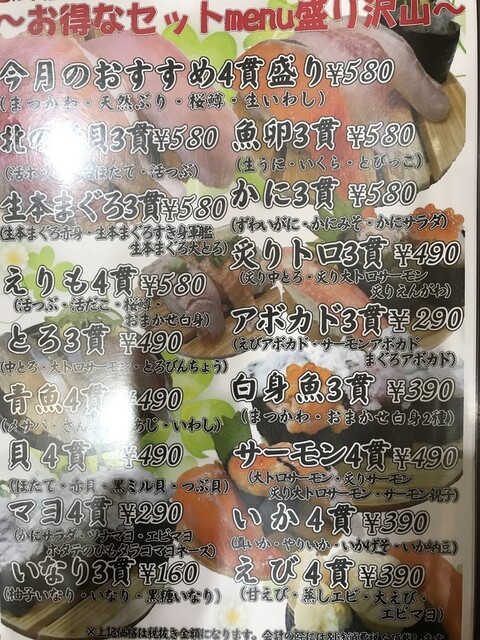 ～お得なセットmenu盛り沢山～
今月のおすすめ4貫盛り¥580
(まつかわ・天然ぶり・桜鱒・生いわし)
北の 貝3貫¥580
ほたて・活つぶ)
生本まぐろ3貫¥580
(生本まぐろ赤身・生本まぐろすき身軍艦
生本まぐろ大とろ)
えりも4貫¥580
(活つぶ・活だこ・桜鱒・
おまかせ白身)
とろ3貫¥490
(中とろ・大トロサーモン・とろびんちょう)
青魚4貫¥490
(〆サバ・ あじ・いわし)
貝4貫¥490
(ほたて・赤貝・黒ミル貝・つぶ貝)
マヨ4貫¥290
(かにサラダ・ツナマヨ・エビマヨ
ホタテのひもタラコマヨネーズ)
いなり3貫¥160
(柚子いなり・いなり・黒糖いなり)
魚卵3貫¥580
(生うに・いくら・とびっこ)
かに3貫¥580
(ずわいがに・かにみそ・かにサラダ)
炙りトロ3貫¥490
(炙り中とろ・炙り大トロサーモン
炙りえんがわ)
アボカド3貫¥290
(えびアボカド・サーモンアボカド
まぐろアボカド)
白身魚3貫¥390
(まつかわ・おまかせ白身2種)
サーモン4貫¥490
(大トロサーモン・炙りサーモン
炙り大トロサーモン・サーモン親子)
いか4貫¥390
(真いか・やりいか・いかげそ・いか納豆)
えび4貫¥390
(甘えび・蒸しエビ・大えび・
エビマヨ)
※上記価格は税抜き金額になります。